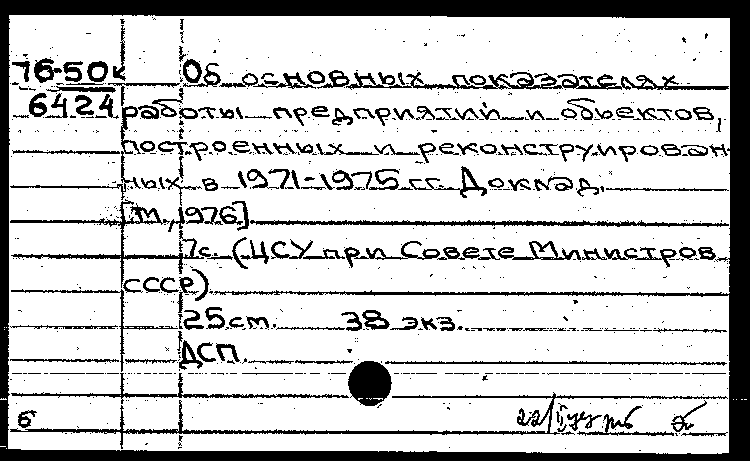 76-50к Об основных показателях
6424 работы предприятий и объектов,
построенных и реконструирован-
ных в 1971-1975 гг. Доклад.
[М., 1976].
7с. (ЦСУ при Совете Министров
СССР)
25см. 38 экз.
ДСП.
б 22/II